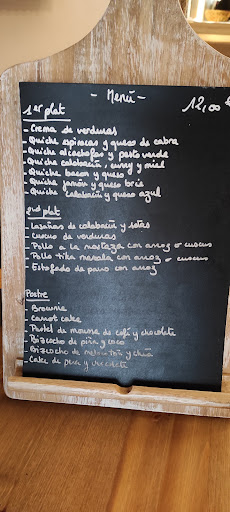 - Menú - 12,00 €
1er plat
- Crema de verduras
- Quiche espinacas y queso de cabra
- Quiche alcachofas y pesto verde
- Quiche calabacín, curry y miel
- Quiche bacon y queso
- Quiche jamón y queso brie
- Quiche calabacín y queso azul
2nd plat
- Lasañas de calabacín y setas
- Cuscus de verduras
- Pollo a la mostaza con arroz o cuscus
- Pollo tika masala con arroz o cuscus
- Estofado de pavo con arroz
Postre
- Brownie
- Carrot cake
- Pastel de mousse de café y chocolate
- Bizcocho de piña y coco
- Bizcocho de y chía
- Cake de pera y chocolate